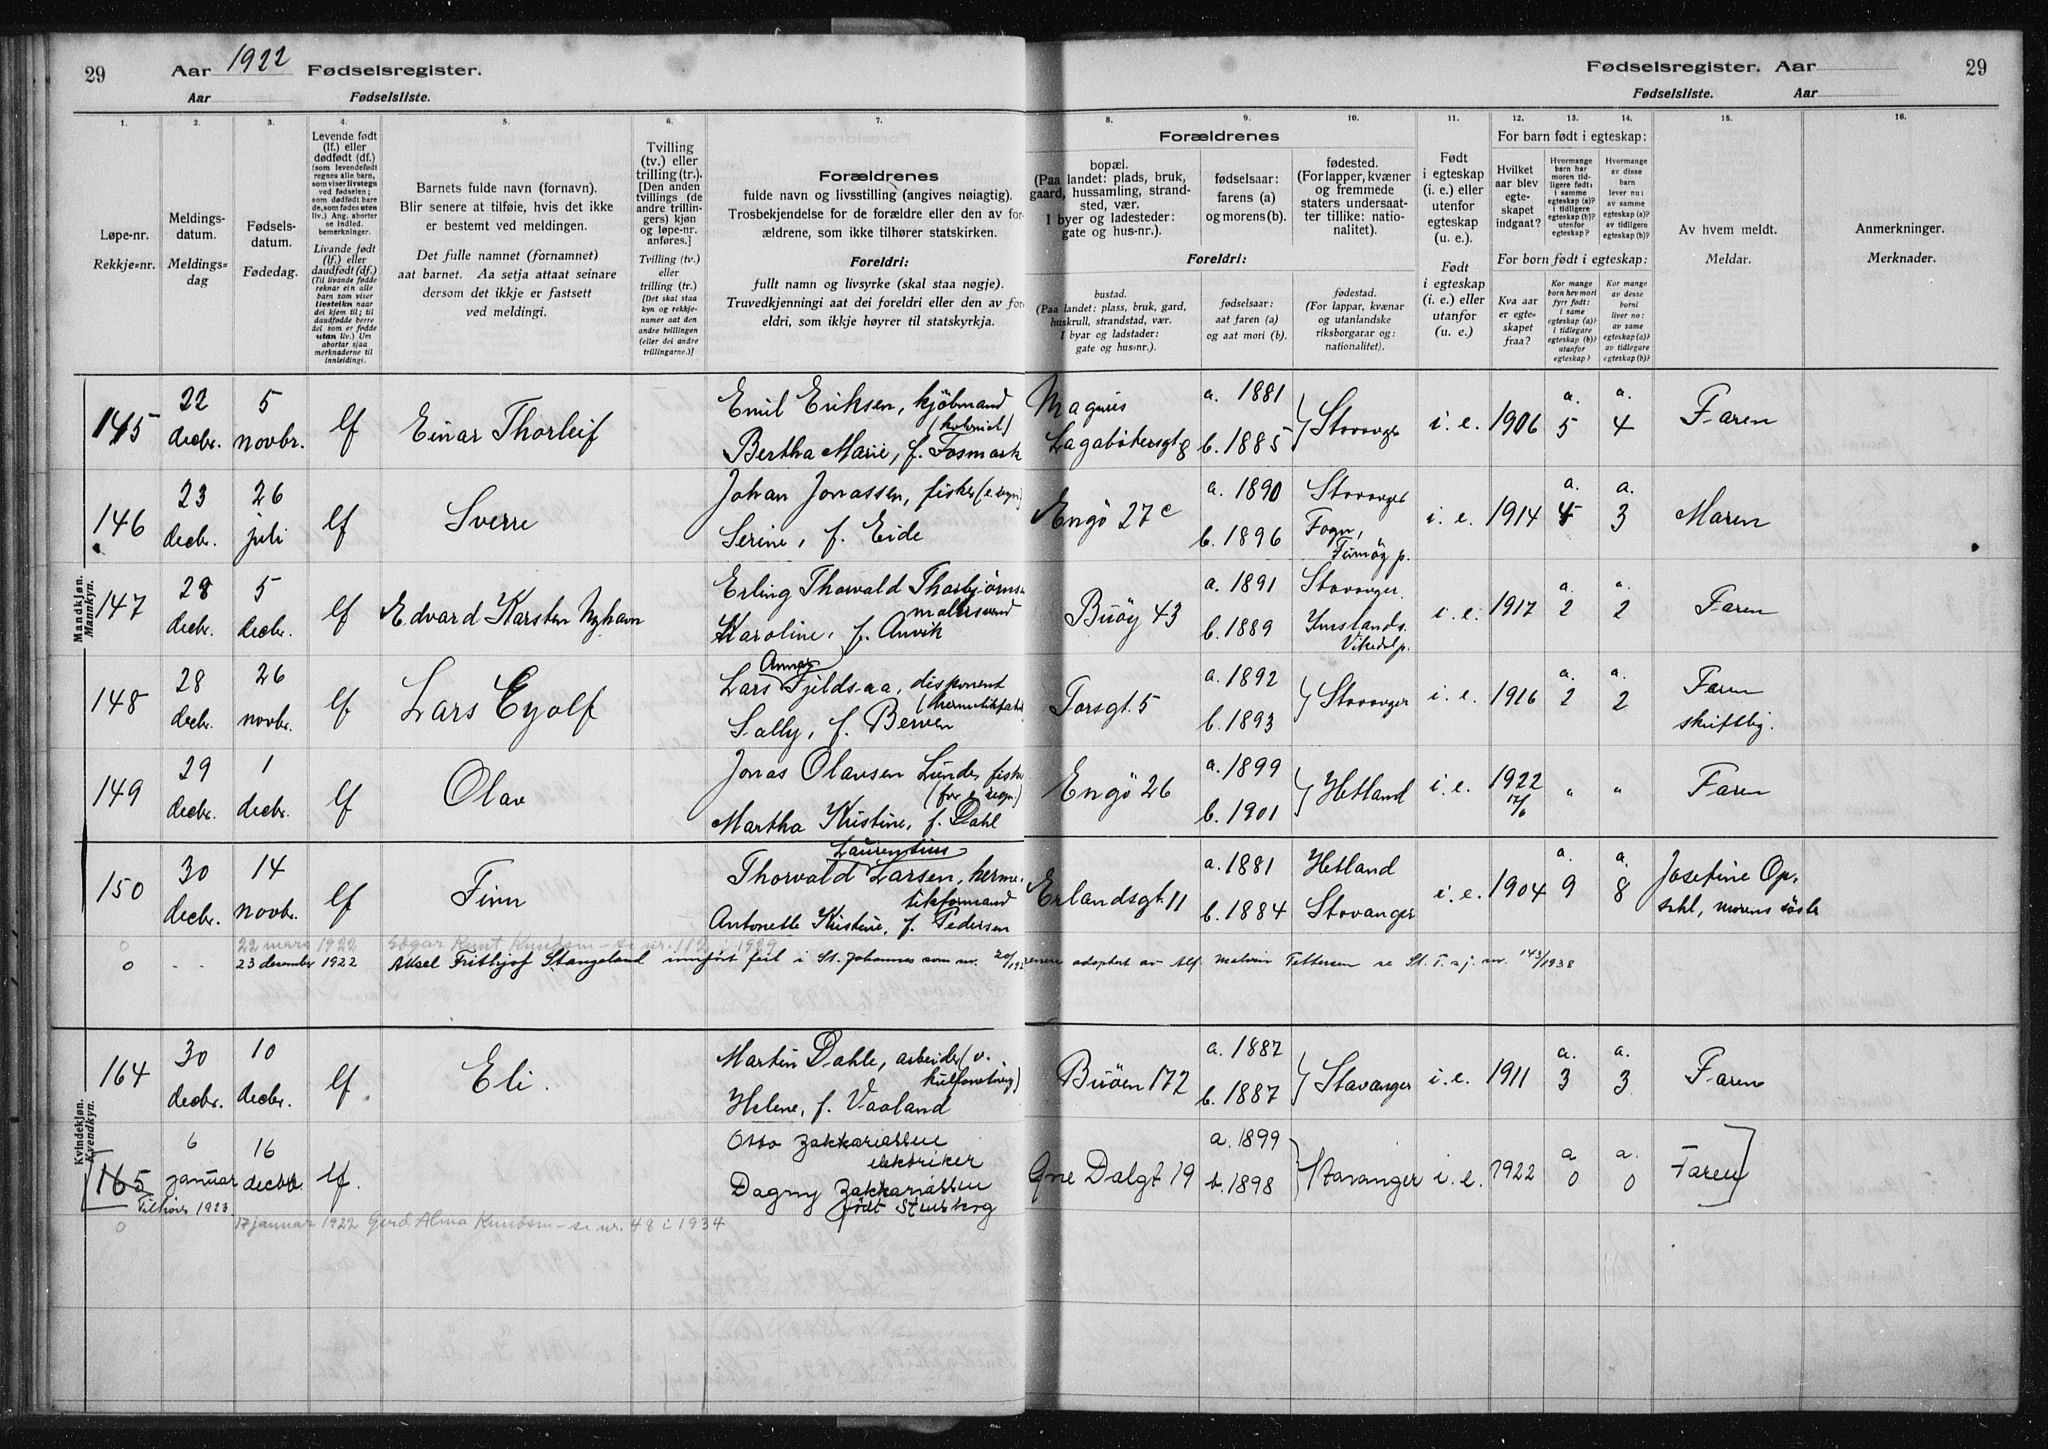 29 Aar 1922 Fødselsregister.
Aar Fødselsliste.
Fødselsregister. Aar 29
Fødselsliste. Aar
1. 2. 3. 4. 5. 6. 7. 8. 9. 10. 11. 12. 13. 14. 15. 16.
Løpe-nr.
Rekkje-nr.
Meldings-
datum.
Meldings-
dag
Fødsels-
datum.
Fødedag.
Levende født
(lf.) eller
dødfødt (df.)
(som levendefødt
regnes alle barn,
som viser livstegn
ved fødselen;
som dødfødt bare
de, som fødes uten
liv.) Ang. aborter
se indled.
bemerkninger.
Livande født
(lf.) eller
daudfødt (df.)
(Til livande fødde
reknar ein alle
barn som viser
livsteikn naar
dei kjem til; til
daudfødde berre
dei som er fødde
utan liv.) Um
abortar sjaa
merknaderne til
innleidingi.
Barnets fulde navn (fornavn).
Blir senere at tilføie, hvis det ikke
er bestemt ved meldingen.
Det fulle namnet (fornamnet)
aat barnet. Aa setja attaat seinare
dersom det ikkje er fastsett
ved meldingi.
Tvilling
(tv.) eller
trilling (tr.).
[Den anden
tvillings (de
andre trillin-
gers) kjøn
og løpe-nr.
anføres.]
Tvilling (tv.)
eller
trilling (tr.)
[Det skal staa
kyn og rekkje-
numer aat den
andre tvillingen
(eller dei andre
trillingarne.)]
Forældrenes
fulde navn og livsstilling (angives nøiagtig).
Trosbekjendelse for de forældre eller den av for-
ældrene, som ikke tilhører statskirken.
Foreldri:
fullt namn og livsyrke (skal staa nøgje).
Truvedkjenningi aat dei foreldri eller den av for-
eldri, som ikkje høyrer til statskyrkja.
Forældrenes
bopæl.
(Paa landet: plads, bruk,
gaard, hussamling, strand-
sted, vær.
I byer og ladesteder:
gate og hus-nr.).
fødselsaar:
farens (a)
og morens (b).
fødested.
(For lapper, kvæner
og fremmede
staters undersaat-
ter tillike: natio-
nalitet).
Foreldri:
bustad.
(Paa landet: plass, bruk, gard,
huskrull, strandstad, vær.
I byar og ladstader:
gate og hus-nr.).
fødselsaar:
aat faren (a)
og aat mori (b).
fødestad.
(For lappar, kvænar
og utanlandske
riksborgarar og:
nationalitet).
Født
i egteskap
(i. e.) eller
utenfor
egteskap
(u. e.).
Født
i egteskap
(i. e.) eller
utanfor
(u. e.)
For barn født i egteskap:
Hvilket
aar blev
egte-
skapet
indgaat?
Hvormange
barn har
moren tid-
ligere født:
i samme
egteskap (a)?
i tidligere
egteskap (b)?
utenfor
egteskap?
Hvormange
av disse
barn
lever nu:
av samme
egteskap (a)?
av tidligere
egteskap (b)?
For born født i egteskap:
Kva aar
er egte-
skapet
fraa?
Kor mange
born hev mori
fyrr født:
i same
egteskap (a)?
i tidlegare
egteskap (b)?
utanfor
egteskap?
Kor mange
av desse
borni
liver no:
av same
egteskap (a)?
av tidlegare
egteskap (b)?
Av hvem meldt.
Meldar.
Anmerkninger.
Merknader.
Mandkjøn.
Mannkyn.
145 22 decbr. 5 novbr. lf Einar Thorleif Emil Eriksen, kjöbmand (kolonial) Magnus a. 1881 Stavanger i. e. 1906 a. 5 a. 4 Faren
Bertha Marie, f. Fosmark Lagabötersgt 8 b. 1885
146 23 decbr. 26 juli lf Sverre Johan Jonassen, fisker (e. regn) Engö 27c a. 1890 Stavanger i. e. 1914 a. a. 3 Maren
Serine, f. Eide b. 1896 Fogn, Finnöy p.
147 28 decbr. 5 decbr. lf Edvard Karsten Nyhavn Erling Thorvald Thorbjörnsen malersvend Buöy 43 a. 1891 Stavanger. i. e. 1917 a. 2 a. 2 Faren
Karoline, f. Anvik b. 1889 Imslands. Vikedal p.
148 28 decbr. 26 novbr. lf Lars Eyolf Lars Fjeldsaa, disponent Torsgt. 5 a. 1892 Stavanger i. e. 1916 a. 2 a. 2 Faren skriftlig.
Sally, f. Berven b. 1893
149 29 decbr. 1 decbr. lf Olav Jonas Olausen Lunde, fisker (for e. regn) Engö 26 a. 1899 Hetland i. e. 1922 17/6 " " Faren
Martha Kristine, f. Dahl b. 1901
150 30 decbr. 14 novbr. lf Finn Thorvald Laurentius Larsen, hermetikformand Erlandsgt. 11 a. 1881 Hetland i. e. 1904 a. 9 a. 8 Josefine Opsahl, morens söster
Antonette Kristine, f. Pedersen b. 1884 Stavanger
0 22 mars 1922 Edgar Knut Knudsen – se nr. 112 i 1929
0 - - 23 desember 1922 Aksel Frithjof Stangeland innfört feil i St. Johannes som nr. adoptert av Alf Malvin Pettersen se St. P. s. j. nr. 143/1938
Kvindekjøn.
Kvendkyn.
164 30 decbr. 10 decbr. lf Eli. Martin Dahle, arbeider (v. kulforretning) Buöen 172 a. 1887 Stavanger i. e. 1911 a. 3 a. 3 Faren
Helene, f. Vaaland b. 1887
165 6 januar 16 decbr. lf. Otto Zakkariassen elektriker Gne Dalgt 19 a. 1899 Stavanger i. e. 1922 a 0 a. 0 Faren
Tilhører 1923 Dagny Zakkariassen født b. 1898
0 17 januar 1922 Gerd Alma Knudsen – se nr. 48 i 1934